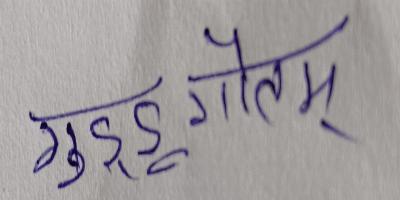 गुड्डू गौतम